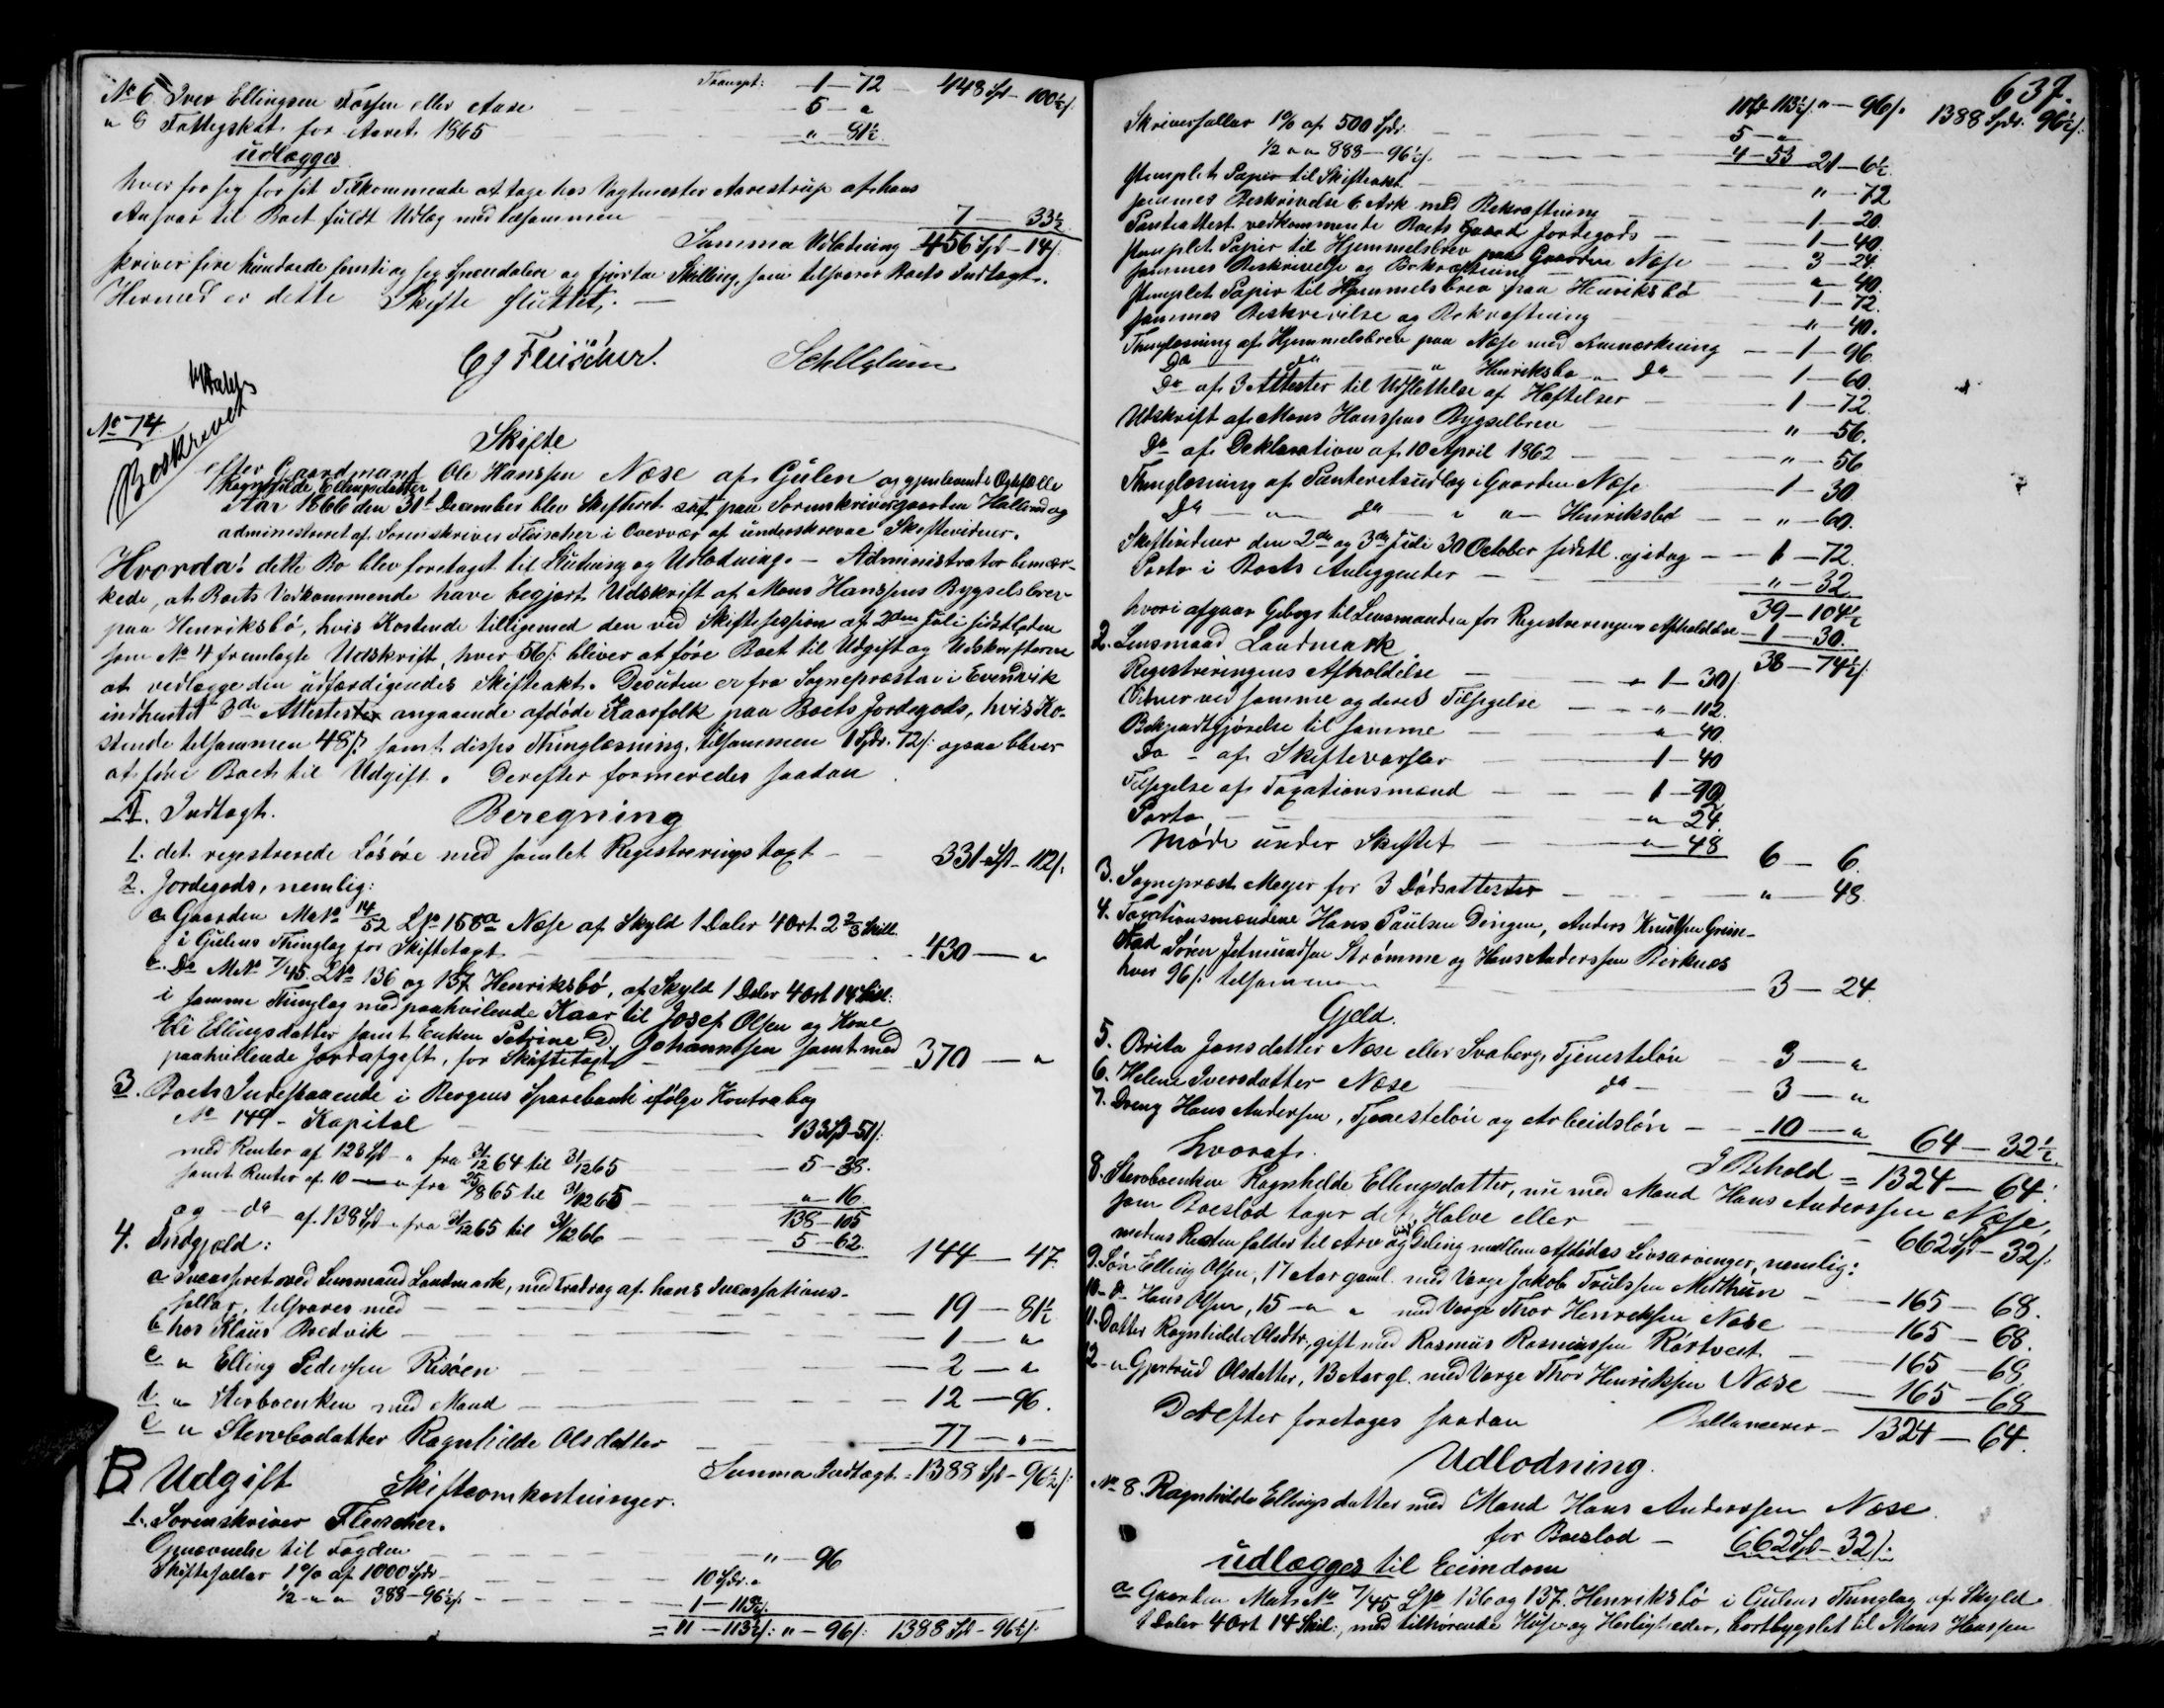 Transpt: 1 — 72 — 448 Spd — 100½/.
No 6. Iver Ellingsen Fossen eller Aase — 5 — "
" 8 Fattigskat for Aaret 1865 — " — 81½
udlægges
hver for sig for sit Tilkommende at tage hos Vagtmester Aarestrup af hans
Ansvar til Boet fuldt Udlæg med tilsammen — 7 — 33½
Summa Udlodning 456 Spd — 14/.
skriver fire hundrede femti og sex Speciedaler og fjorten Skilling, som tilsvarer Boets Indtægt.
Hermed er dette Skifte sluttet. —
Fleischer.
No 74.
Beskrevet
Skifte
efter Gaardmand Ole Hanssen Næse af Gulen og gjenlevende Ægtefælle
Ragnhilde Ellingsdatter
Aar 1866 den 31te December blev Skifteret sat paa Sorenskrivergaarden Halland og
administreret af Sorenskriver Fleischer i Overvær af underskrevne Skiftevidner.
Hvorda: dette Bo blev foretaget til Slutning og Udlodning. — Administrator bemær-
kede, at Boets Vedkommende have begjært Udskrift af Mons Hanssens Bygselsbrev
paa Henriksbø, hvis Kostende tilligemed den ved Skiftesession af 2den Juli sidstleden
som No 4 fremlagte Udskrift, hver 56/. bliver at føre Boet til Udgift og Udskrifterne
at vedlægge den udfærdigendes Skifteakt. Desuden er fra Sognepræsten i Evendvik
indhentet 3de Attester angaaende afdøde Kaarfolk paa Boets Jordegods, hvis Ko-
stende tilsammen 48/. samt disses Thinglæsning, tilsammen 1 Spdr. 72/. ogsaa bliver
at føre Boet til Udgift. Derefter formeredes saadan
A. Indtægt. Beregning
1. det registrerede Løsøre med samlet Registreringstaxt — 331 Spd — 112/.
2. Jordegods, nemlig:
a Gaarden MNo 14/52 LNo 158a Næse af Skyld 1 Daler 4 Ort 2⅔ Skill.
i Gulens Thinglag for Skiftetaxt — 430 — "
b. Do MNo 7/45 LNo 136 og 137 Henriksbø, af Skyld 1 Daler 4 Ort 14 Skil:
i samme Thinglag med paahvilende Kaar til Josef Olsen og Kone
Eli Ellingsdatter samt Enken Petrine D. Johannssen samt med
paahvilende Jordafgift, for Skiftetaxt — 370 — "
3. Boets Indestaaende i Bergens Sparebank ifølge Kontrabog
No 149 - Kapital — 133 Spd — 51/.
med Renter af 123 Spd - " fra 31/12 64 til 31/12 65 — 5 — 38.
samt Renter af 10 — " fra 25/8 65 til 31/12 65 — " — 16.
og - do - af 138 Spd - fra 31/12 65 til 31/12 66 — 138 — 105
5 — 62. 144 — 47.
4. Indgjæld:
a Incasseret ved Lensmand Landmark, med Fradrag af hans Incassations-
sallar, tilsvares med — 19 — 81½
b hos Klaus Bredvik — 1 — "
c " Elling Pedersen Risøen — 2 — "
d " Sterboenken med Mand — 12 — 96.
e " Stervbodatter Ragnhilde Olsdatter — 77 — " —
Summa Indtægt = 1388 Spd — 96½/.
B Udgift Skifteomkostninger.
1. Sorenskriver Fleischer.
Opnævnelse til Fogden — " — 96
Skiftesallar 1% af 1000 Spdr — 10 Spdr. "
½ - " " 388 — 96½/. — 1 — 113½/.
= 11 — 113½/: " — 96/: 1388 Spd — 96½/.
637.
11 Spd 113½/. " — 96/. 1388 Spdr. 96½/:
Skriversallar 1% af 500 Spdr. — 5 — "
½ " " 888 — 96½/. — 4 — 53 21 — 6½.
stemplet Papir til Skifteakt — " — 72
sammes Beskrivelse 6 Ark med Bekræftning — 1 — 20.
Panteattest vedkommende Boets Jordegods — 1 — 40.
stemplet Papir til Hjemmelsbrev paa Gaarden Næse — 3 — 24.
sammes Beskrivelse og Bekræftning — " — 40.
stemplet Papir til Hjemmelsbrev paa Henriksbø — 1 — 72.
sammes Beskrivelse og Bekræftning — " — 40.
Thinglæsning af Hjemmelsbrev paa Næse med Anmærkning — 1 — 96.
Do do " Henriksbø " Do — 1 — 60.
Do af 3 Attester til Udslettelse af Hæftelser — 1 — 72.
Udskrift af Mons Hanssens Bygselbrev — " — 56.
Do af Deklaration af 10 April 1862 — " — 56
Thinglæsning af Panteretsudlæg i Gaarden Næse — 1 — 30.
Do — " — do — " " — Henriksbø — " — 60.
Skiftevidner den 2de og 3de Juli 30 October sidstl. og idag — 1 — 72.
Porto i Boets Anliggender — " — 32
39 — 104½
hvori afgaar Gebyr til Lensmanden for Registreringens Afholdelse — 1 — 30.
2. Lensmand Landmark — 38 — 74½/.
Registreringens Afholdelse — 1 — 30/
Vidner ved samme og deres Tilsigelse — " — 112.
Bekjendtgjørelse til samme — " — 40
Do - af Skiftevarsler — 1 — 40
Tilsigelse af Taxationsmænd — 1 — 70
Porto — " — 24.
Møde under Skiftet — " — 48 6 — 6.
3. Sognepræst Meyer for 3 Dødsattester — " — 48.
4. Taxationsmændene Hans Paulsen Dingen, Anders Knudsen Grim-
stad Søren Jetmundsen Strømme og Hans Anderssen Birknes
hver 96/. tilsammen — 3 — 24.
Gjeld.
5. Brita Jonsdatter Næse eller Svaberg, Tjenesteløn — 3 — "
6. Helene Iversdatter Næse — do — 3 — "
7. Dreng Hans Andersen, Tjenesteløn og Arbeidsløn — 10 — " 64 — 32½.
hvoraf. I Behold = 1324 — 64.
8. Sterboenken Ragnhilde Ellingsdatter, nu med Mand Hans Anderssen Næse,
som Boeslod tager det Halve eller — 662 Spd — 32/.
medens Resten falder til Arv og Deling mellem Afdødes Livsarvinger, nemlig:
9. Søn Elling Olsen, 17 Aar gaml. med Verge Jakob Trulssen Midthun — 165 — 68.
10 - Do Hans Olsen, 15 - " " med Verge Thor Henriksen Næse — 165 — 68.
11. Datter Ragnhilde Olsdtr, gift med Rasmus Rasmussen Rørtveit — 165 — 68.
12 - " Gjertrud Olsdatter, 13 Aar gl. med Verge Thor Henriksen Næse — 165 — 68
Derefter foretoges saadan Ballancerer — 1324 — 64.
Udlodning.
No 8. Ragnhilde Ellingsdatter med Mand Hans Anderssen Næse.
for Boeslod — 662 Spd — 32/:
udlægges til Eiendom
a Gaarden Mat. No 7/45 LNo 136 og 137. Henriksbø i Gulens Thinglag af Skyld
1 Daler 4 Ort 14 Skil:, med tilhørende Huse og Herligheder, bortbygslet til Mons Hanssen